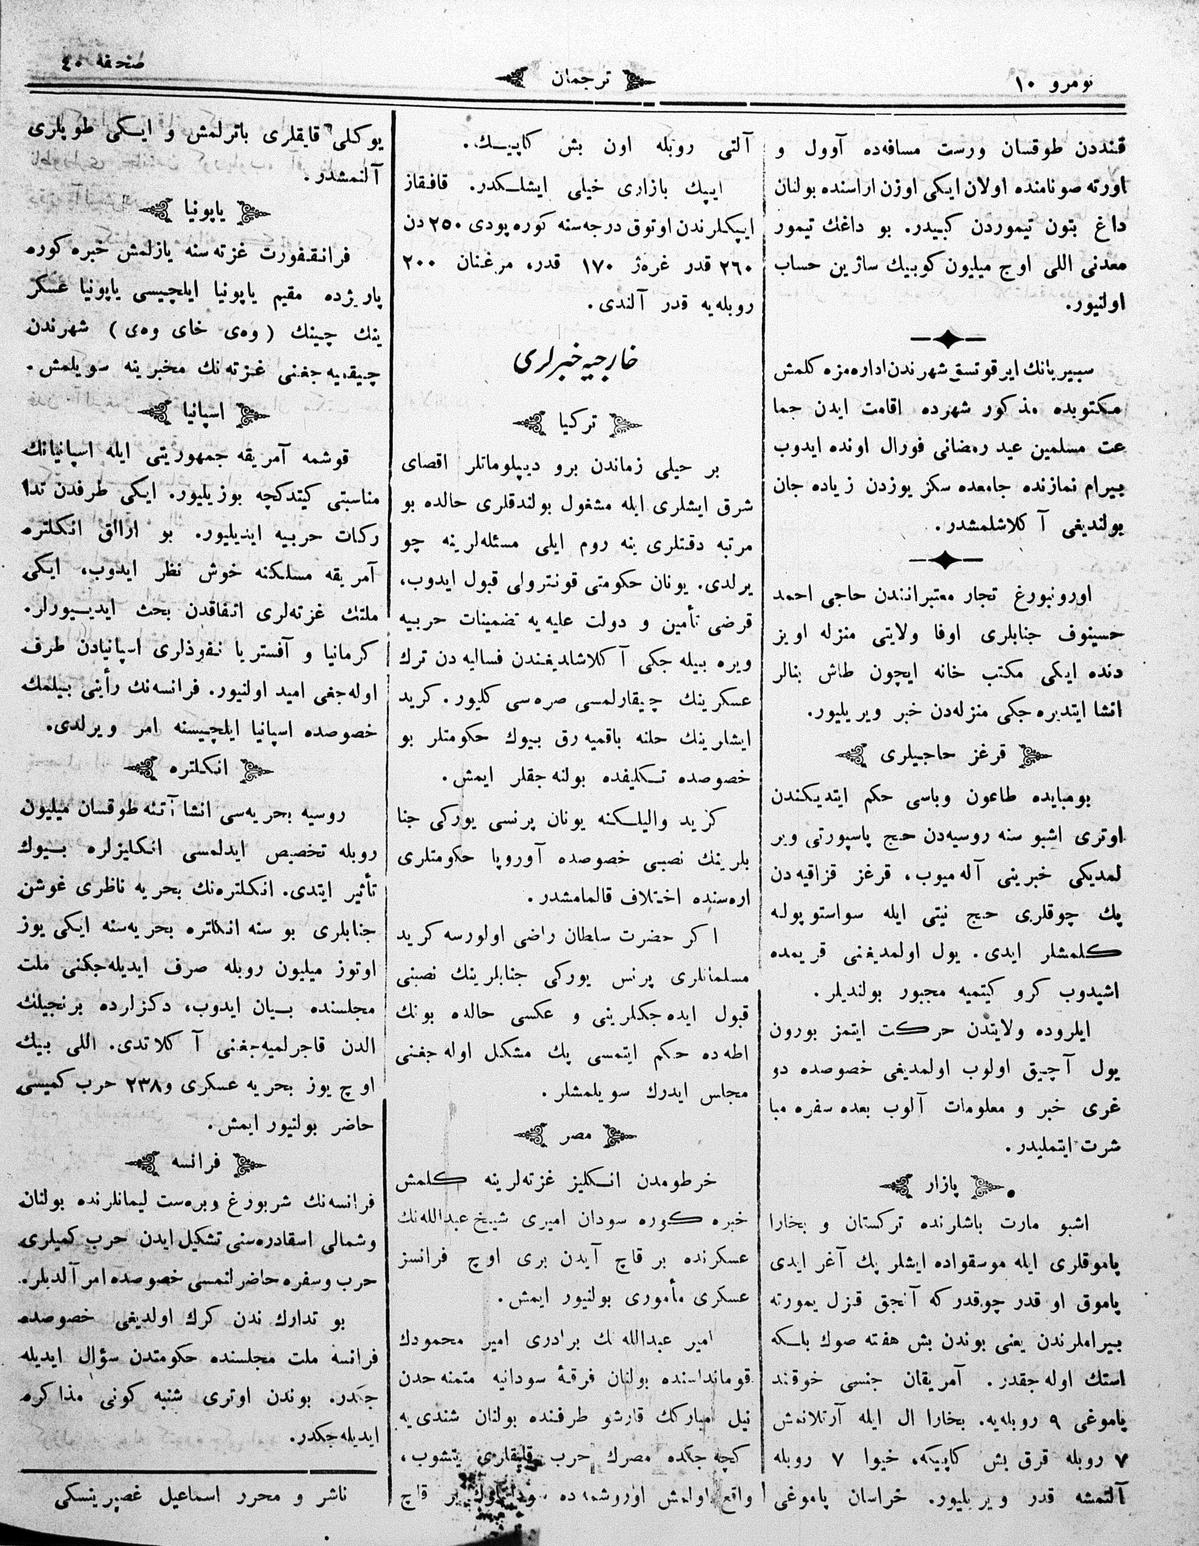 نومرو ١٠
ترجمان
صحفه ٤٠
قنددن طوقسان ورست مسافه‌ده آوول و
اورته صونامنده اولان ایكی اوزن اراسنده بولنان
داغ بتون تیموردن كبیدر. بو داغك تیمور
معدنی اللی اوچ میلیون كوبیك ساژین حساب
اولنیور.
سیبیریانك ایرقوتسق شهرندن اداره‌مزه كلمش
مكتوبده مذكور شهرده اقامت ایدن جما
عت مسلمین عید رمضانی فورال اونده ایدوب
بیرام نمازنده جامعده سكز یوزدن زیاده جان
بولندیغی آ كلاشلمشدر.
اورونبورغ تجار معتبرانندن حاجی احمد
حسینوف جنابلری اوفا ولایتی منزله اویز
دنده ایكی مكتب خانه ایچون طاش بنالر
انشا ایتدیره‌جكی منزله‌دن خبر ویریلیور.
قرغز حاجیلری
بومبایده طاعون وباسی حكم ایتدیكندن
اوتری اشبو سنه روسیه‌دن حج پاسپورتی ویر
لمدیكی خبرینی آله‌میوب، قرغز قزاقیه‌دن
پك چوقلری حج نیتی ایله سواستوپوله
كلمشلر ایدی. یول اولمدیغنی قریمده
اشیدوب كرو كیتمیه مجبور بولندیلر.
ایلروده ولایتدن حركت ایتمز بورون
یول آچیق اولوب اولمدیغی خصوصده دو
غری خبر و معلومات آلوب بعده سفره مبا
شرت ایتملیدر.
پازار
اشبو مارت باشلرنده تركستان و بخارا
پاموقلری ایله موسقواده ایشلر پك آغر ایدی
پاموق او قدر چوقدركه آنجق قزل یمورته
بیراملرندن یعنی بوندن بش هفته صوك بلسكه
استك اوله‌جقدر. آمریقان جنسی خوقند
پاموغی ٩ روبله‌یه. بخارا ال ایله آرتلانمش
٧ روبله قرق بش كاپیكه، خیوا ٧ روبله
آلتمشه قدر ویریلیور. خراسان پاموغی
آلتی روبله اون بش كاپیك.
ایپك بازاری خیلی ایشلكدر. قافقاز
ایپكلرندن اوتوق درجه‌سنه كوره پودی ٢٥٠ دن
٢٦٠ قدر غره‌ژ ١٧٠ قدر، مرغنان ٢٠٠
روبله‌یه قدر آلندی.
خارجیه خبرلری
تركیا
بر خیلی زماندن برو دیپلوماتلر اقصای
شرق ایشلری ایله مشغول بولندقلری حالده بو
مرتبه دقتلری ینه روم ایلی مسئله‌لرینه چو
یرلدی. یونان حكومتی قونترولی قبول ایدوب،
قرضی تأمین و دولت علیه‌یه تضمینات حربیه
ویره بیله جكی آ كلاشلدیغندن فسالیه دن ترك
عسكرینك چیقارلمسی صره‌سی كلیور. كرید
ایشلرینك حلنه باقمیه‌رق بیوك حكومتلر بو
خصوصده تكلیفده بولنه‌جقلر ایمش.
كرید والیلكنه یونان پرنسی یوركی جنا
بلرینك نصبی خصوصده آوروپا حكومتلری
اره‌سنده اختلاف قالمامشدر.
اكر حضرت سلطان راضی اولورسه كرید
مسلمانلری پرنس یوركی جنابلرینك نصبنی
قبول ایده‌جكلرینی و عكسی حالده بونك
اطه‌ده حكم ایتمسی پك مشكل اوله‌جغنی
مجلس ایدرك سویلمشلر.
مصر
خرطومدن انكلیز غزته‌لرینه كلمش
خبره كوره سودان امیری شیخ عبدالله‌نك
عسكرنده بر قاچ آیدن بری اوچ فرانسز
عسكری مأموری بولنیور ایمش.
امیر عبدالله‌نك برادری امیر محمودك
قوماندا‌سنده بولنان فرقۀ سودانیه متمنه‌حدن
نیل مبارك قارشو طرفنده بولنان شندی‌یه
كچه‌جكده مصرك حرب قایقلری یتشوب،
واقع اولمش اوروشمه‌ده بر قاچ
یوكلی قایقلری باترلمش و ایكی طوپلری
آلنمشدر.
یاپونیا
فرانقفورت غزته‌سنه یازلمش خبره كوره
پاریژده مقیم یاپونیا ایلچیسی یاپونیا عسكر
ینك چینك (وه‌ی خای وه‌ی) شهرندن
چیقمیه‌جغنی غزته‌نك مخبرینه سویلمش.
اسپانیا
قوشمه آمریقه جمهوریتی ایله اسپانیانك
مناسبتی كیتدكچه بوزیلیور. ایكی طرفدن تدا
ركات حربیه ایدیلیور. بو ارالق انكلتره
آمریقه مسلكنه خوش نظر ایدوب، ایكی
ملتك غزته‌لری اتفاقدن بحث ایدیورلر.
كرمانیا و آفستریا نفوذلری اسپانیادن طرف
اوله‌جغی امید اولنیور. فرانسه‌نك رأینی بیلمك
خصوصده اسپانیا ایلچیسنه امر ویرلدی.
انكلتره
روسیه بحریه‌سی انشا آتنه طوقسان میلیون
روبله تخصیص ایدلمسی انكلیزلره بیوك
تأثیر ایتدی. انكلتره‌نك بحریه ناظری غوشن
جنابلری بو سنه انكلتره بحریه‌سنه ایكی یوز
اوتوز میلیون روبله صرف ایدیله‌جكنی ملت
مجلسنده بیان ایدوب، دكزلرده برنجیلك
الدن قاجرلمیه‌جغنی آ كلاتدی. اللی بیك
اوچ یوز بحریه عسكری و٢٣٨ حرب كمیسی
حاضر بولنیور ایمش.
فرانسه
فرانسه‌نك شربورغ وبره‌ست لیمانلرنده بولنان
وشمالی اسقادره‌سنی تشكیل ایدن حرب كمیلری
حرب وسفره حاضرلنمسی خصوصده امر آلدیلر.
بو تدارك ندن كرك اولدیغی خصوصده
فرانسه ملت مجلسنده حكومتدن سؤال ایدیله
جكدر. بوندن اوتری شنبه كونی مذاكره
ایدیله‌جكدر.
ناشر و محرر اسماعیل غصپرینسكی